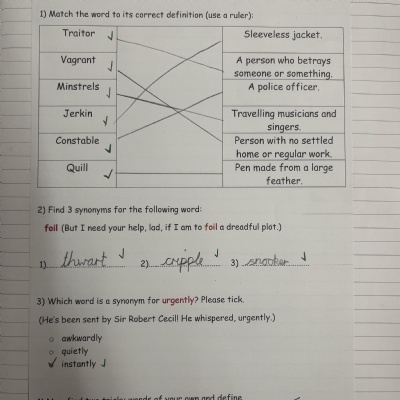 1) Match the word to its correct definition (use a ruler):
Traitor
Sleeveless jacket.
Vagrant
A person who betrays
someone or something.
Minstrels
A police officer.
Jerkin
Travelling musicians and
singers.
Constable
Person with no settled
home or regular work.
Quill
Pen made from a large
feather.
2) Find 3 synonyms for the following word:
foil (But I need your help, lad, if I am to foil a dreadful plot.)
1) thwart 2) cripple 3) snooker
3) Which word is a synonym for urgently? Please tick.
(He's been sent by Sir Robert Cecil! He whispered, urgently.)
awkwardly
quietly
instantly
words of your own and define